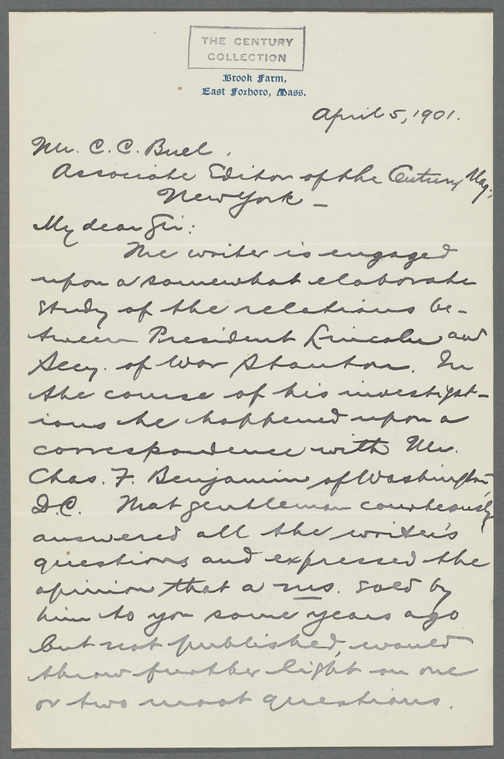 THE CENTURY
COLLECTION
Brook Farm,
East Foxboro, Mass.
April 5, 1901.
Mr. C. C. Buel,
Associate Editor of the Century Mag,
New York –
My dear Sir:
The writer is engaged
upon a somewhat elaborate
study of the relations be-
tween President Lincoln and
Secy. of War Stanton. In
the course of his investigat-
ions he happened upon a
correspondence with Mr.
Chas. F. Benjamin of Washington,
D.C. That gentleman courteously
answered all the writer's
questions and expressed the
opinion that a ms. sold by
him to you some years ago
but not published, would
throw further light on one
or two moot questions.